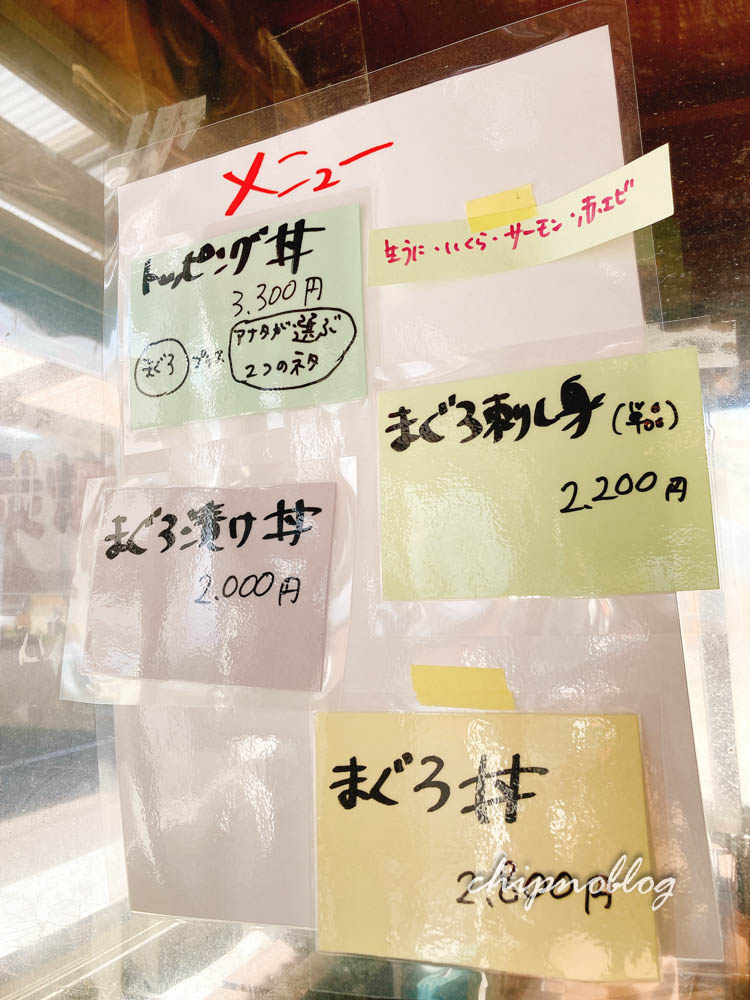 メニュー
トッピング丼
3,300円
まぐろ プラス アナタが選ぶ
2つのネタ
生うに・いくら・サーモン・赤エビ
まぐろ刺し身(単品)
2,200円
まぐろ漬け丼
2,000円
まぐろ丼
chipnoblog